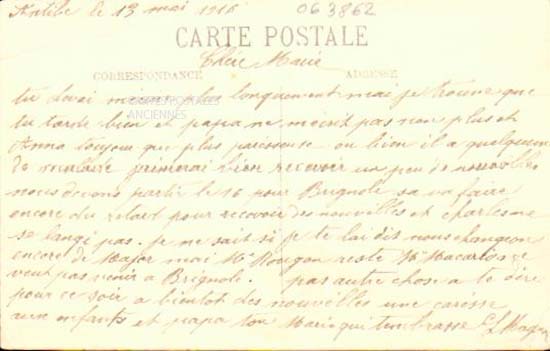 Antibe le 13 mai 1916
063862
CARTE POSTALE
Chère Marie
CORRESPONDANCE ADRESSE
CARTES POSTALES
ANCIENNES
tu longuement mai je trouve que
tu tarde bien et papa ne moin pas non plus et
Anna toujour que plus paresseuse ou bien il a quelquun
de malade recevoir un peu de nouvelles
nous devons partir le 16 pour Brignole sa va faire
encore du retard pour recevoir des nouvelles et charles me
se langi pas. je ne sait si je te lai dit nous changeon
encore de Major mai Mr Rougon reste
veut pas venir a Brignole. pas autre chose a te dire
pour ce soir a bientot des nouvelles une caresse
aux enfants et papa ton Mari qui tembrasse